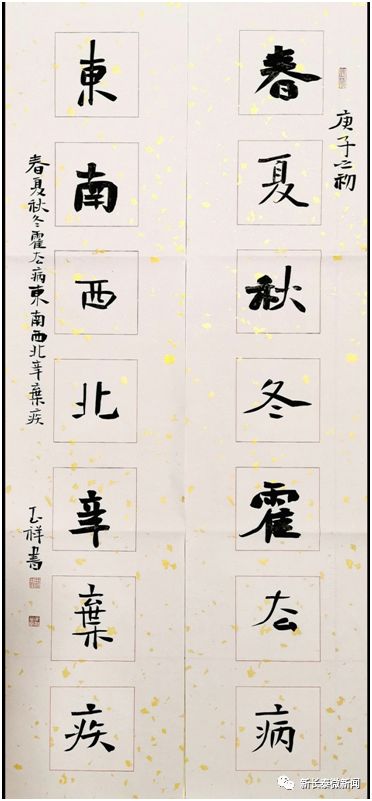 庚子之初
春夏秋冬霍厺病
東南西北辛棄疾
春夏秋冬霍厺病東南西北辛棄疾
玉祥書
新长泰微新闻